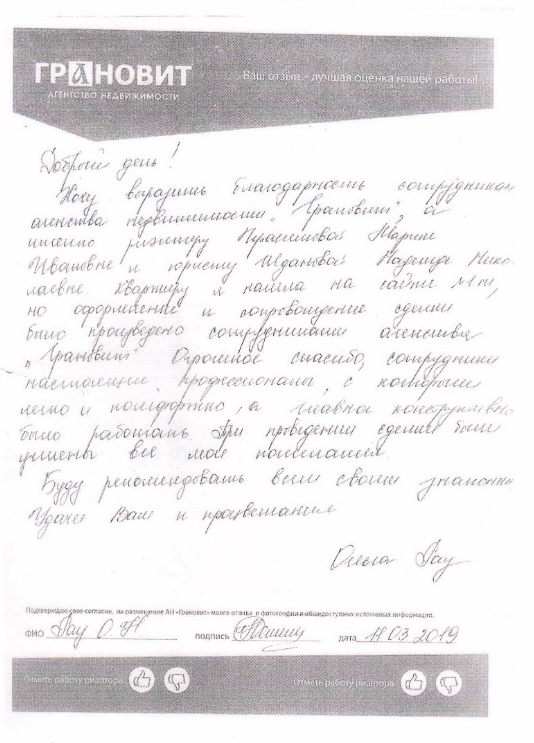 ГРАНОВИТ
АГЕНТСТВО НЕДВИЖИМОСТИ
Ваш отзыв – лучшая оценка нашей работы!
Добрый день!
Хочу выразить благодарность сотрудникам
агенства недвижимости „Грановит", а
именно риэлтеру Марине
Ивановне и юристу Ждановой Надежде Нико-
лаевне. Квартиру я нашла на сайте
но оформление и сопровождение сделки
было произведено сотрудниками агенства
„Грановит" Огромное спасибо, сотрудники
настоящие профессионалы, с которыми
легко и комфортно, а главное конструктивно
было работать При проведении сделки были
учтены все мои пожелания.
Буду рекомендовать всем своим знакомым
Удачи Вам и процветания
Ольга Гау
Подтверждаю свое согласие, на размещение АН «Грановит» моего отзыва и фотографии в общедоступных источниках информации.
ФИО Гау О. Н подпись дата 11.03.2019
Отметь работу риэлтора Отметь работу риэлтора